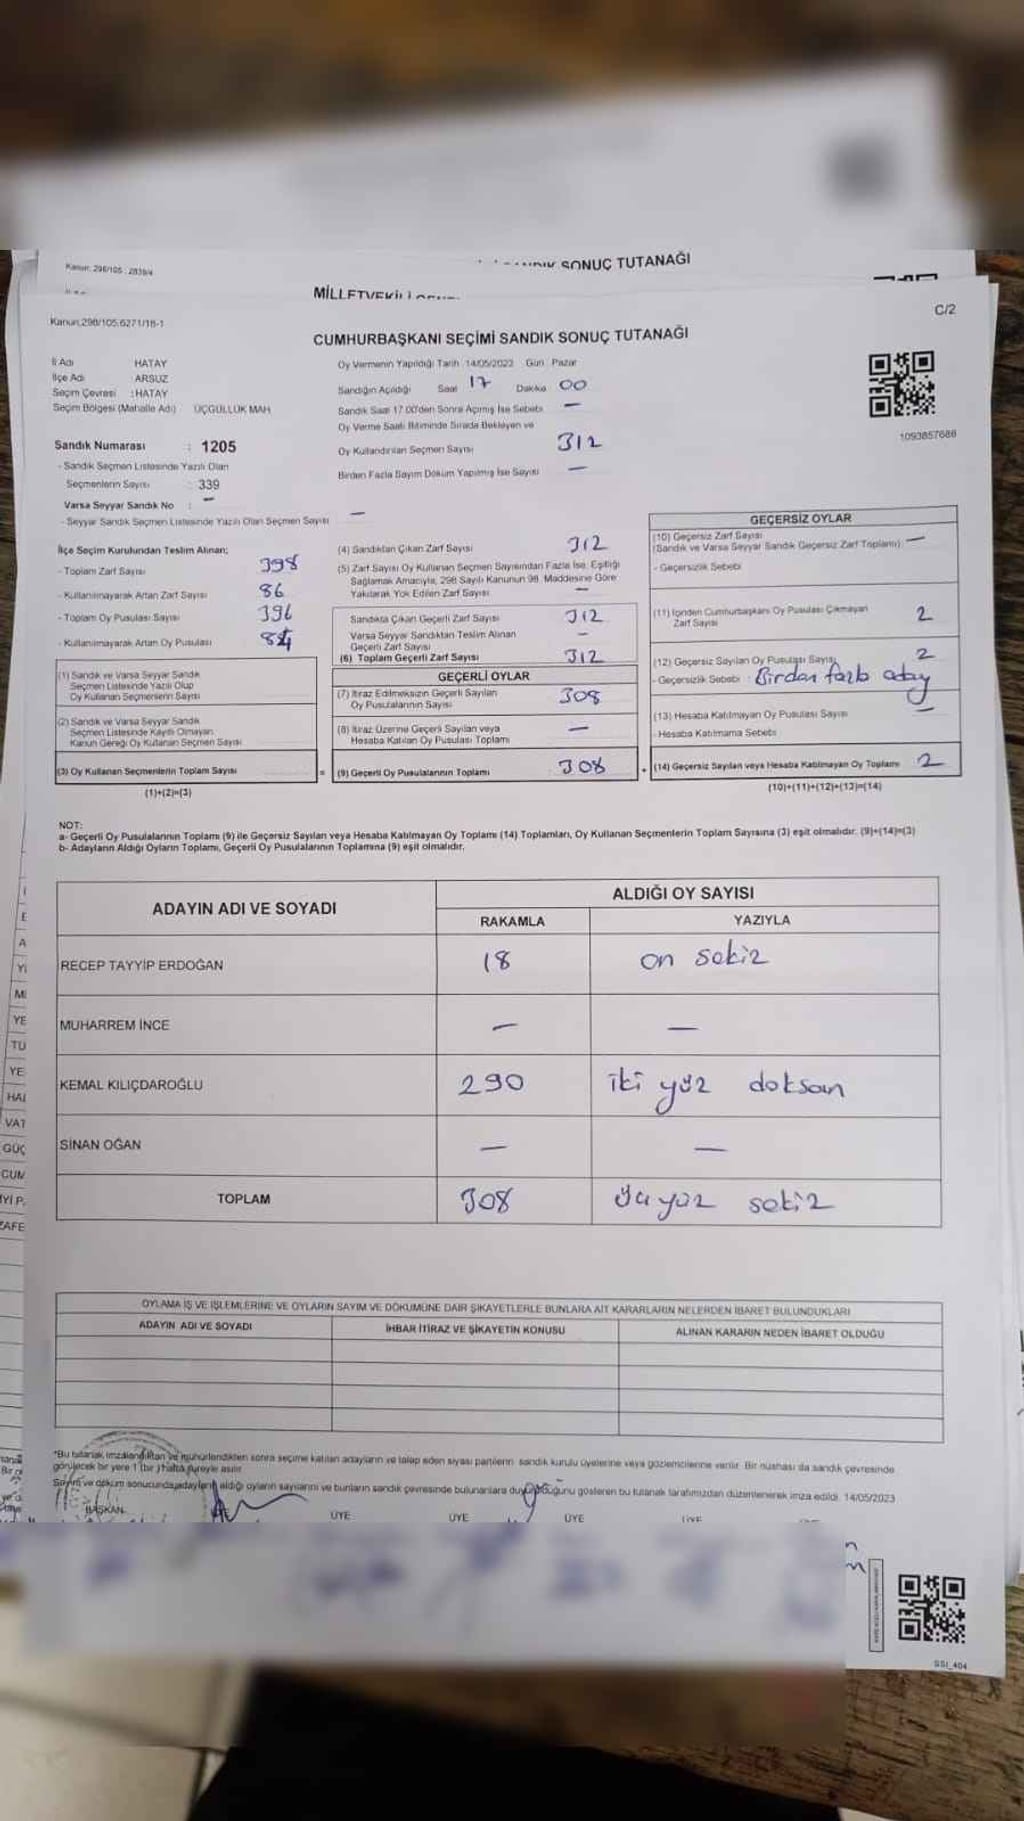 Kanun: 298/105 : 2839/4
SONUÇ TUTANAĞI
MİLLETVEKİLİ
Kanun:298/105,6271/18-1
C/2
CUMHURBAŞKANI SEÇİMİ SANDIK SONUÇ TUTANAĞI
İl Adı HATAY
İlçe Adı ARSUZ
Seçim Çevresi : HATAY
Seçim Bölgesi (Mahalle Adı) ÜÇGÜLLÜK MAH
Sandık Numarası : 1205
- Sandık Seçmen Listesinde Yazılı Olan
Seçmenlerin Sayısı : 339
Varsa Seyyar Sandık No : —
- Seyyar Sandık Seçmen Listesinde Yazılı Olan Seçmen Sayısı —
Oy Vermenin Yapıldığı Tarih 14/05/2023 Gün Pazar
Sandığın Açıldığı Saat 17 Dakika 00
Sandık Saat 17.00'den Sonra Açılmış İse Sebebi —
Oy Verme Saati Bitiminde Sırada Bekleyen ve
Oy Kullandırılan Seçmen Sayısı 312
Birden Fazla Sayım Döküm Yapılmış İse Sayısı —
1093857686
İlçe Seçim Kurulundan Teslim Alınan;
- Toplam Zarf Sayısı 398
- Kullanılmayarak Artan Zarf Sayısı 86
- Toplam Oy Pusulası Sayısı 396
- Kullanılmayarak Artan Oy Pusulası 84
(1) Sandık ve Varsa Seyyar Sandık
Seçmen Listesinde Yazılı Olup
Oy Kullanan Seçmenlerin Sayısı
(2) Sandık ve Varsa Seyyar Sandık
Seçmen Listesinde Kayıtlı Olmayan
Kanun Gereği Oy Kullanan Seçmen Sayısı
(3) Oy Kullanan Seçmenlerin Toplam Sayısı
(1)+(2)=(3)
(4) Sandıktan Çıkan Zarf Sayısı 312
(5) Zarf Sayısı Oy Kullanan Seçmen Sayısından Fazla İse, Eşitliği
Sağlamak Amacıyla, 298 Sayılı Kanunun 98. Maddesine Göre
Yakılarak Yok Edilen Zarf Sayısı —
Sandıkta Çıkan Geçerli Zarf Sayısı 312
Varsa Seyyar Sandıktan Teslim Alınan
Geçerli Zarf Sayısı —
(6) Toplam Geçerli Zarf Sayısı 312
GEÇERLİ OYLAR
(7) İtiraz Edilmeksizin Geçerli Sayılan
Oy Pusulalarının Sayısı 308
(8) İtiraz Üzerine Geçerli Sayılan veya
Hesaba Katılan Oy Pusulası Toplamı —
= (9) Geçerli Oy Pusulalarının Toplamı 308
GEÇERSİZ OYLAR
(10) Geçersiz Zarf Sayısı
(Sandık ve Varsa Seyyar Sandık Geçersiz Zarf Toplamı) —
- Geçersizlik Sebebi
(11) İçinden Cumhurbaşkanı Oy Pusulası Çıkmayan
Zarf Sayısı 2
(12) Geçersiz Sayılan Oy Pusulası Sayısı 2
- Geçersizlik Sebebi : Birden fazla aday
(13) Hesaba Katılmayan Oy Pusulası Sayısı —
- Hesaba Katılmama Sebebi
+ (14) Geçersiz Sayılan veya Hesaba Katılmayan Oy Toplamı 2
(10)+(11)+(12)+(13)=(14)
NOT:
a- Geçerli Oy Pusulalarının Toplamı (9) ile Geçersiz Sayılan veya Hesaba Katılmayan Oy Toplamı (14) Toplamları, Oy Kullanan Seçmenlerin Toplam Sayısına (3) eşit olmalıdır. (9)+(14)=(3)
b- Adayların Aldığı Oyların Toplamı, Geçerli Oy Pusulalarının Toplamına (9) eşit olmalıdır.
ADAYIN ADI VE SOYADI ALDIĞI OY SAYISI
RAKAMLA YAZIYLA
RECEP TAYYİP ERDOĞAN 18 on sekiz
MUHARREM İNCE — —
KEMAL KILIÇDAROĞLU 290 iki yüz doksan
SİNAN OĞAN — —
TOPLAM 308 üçyüz sekiz
OYLAMA İŞ VE İŞLEMLERİNE VE OYLARIN SAYIM VE DÖKÜMÜNE DAİR ŞİKAYETLERLE BUNLARA AİT KARARLARIN NELERDEN İBARET BULUNDUKLARI
ADAYIN ADI VE SOYADI İHBAR İTİRAZ VE ŞİKAYETİN KONUSU ALINAN KARARIN NEDEN İBARET OLDUĞU
*Bu tutanak, imzalandıktan ve mühürlendikten sonra seçime katılan adayların ve talep eden siyasi partilerin sandık kurulu üyelerine veya gözlemcilerine verilir. Bir nüshası da sandık çevresinde
görülecek bir yere 1 (bir) hafta süreyle asılır.
Sayım ve döküm sonucunda adayların aldığı oyların sayılarını ve bunların sandık çevresinde bulunanlara duyurulduğunu gösteren bu tutanak tarafımızdan düzenlenerek imza edildi. 14/05/2023
BAŞKAN ÜYE ÜYE ÜYE ÜYE
GSI_404